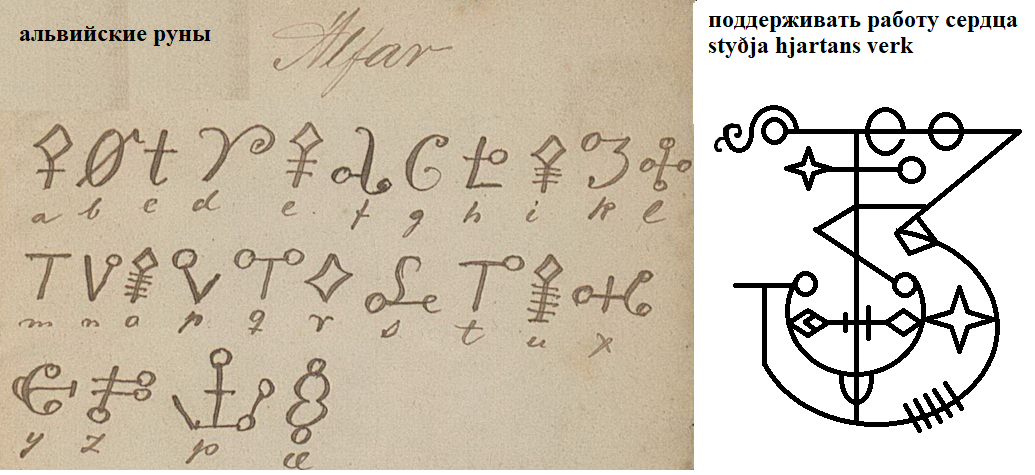 альвийские руны
Alfar
a b c d e. f g h i k l
m n o p q r s t u x
y z þ æ
поддерживать работу сердца
styðja hjartans verk